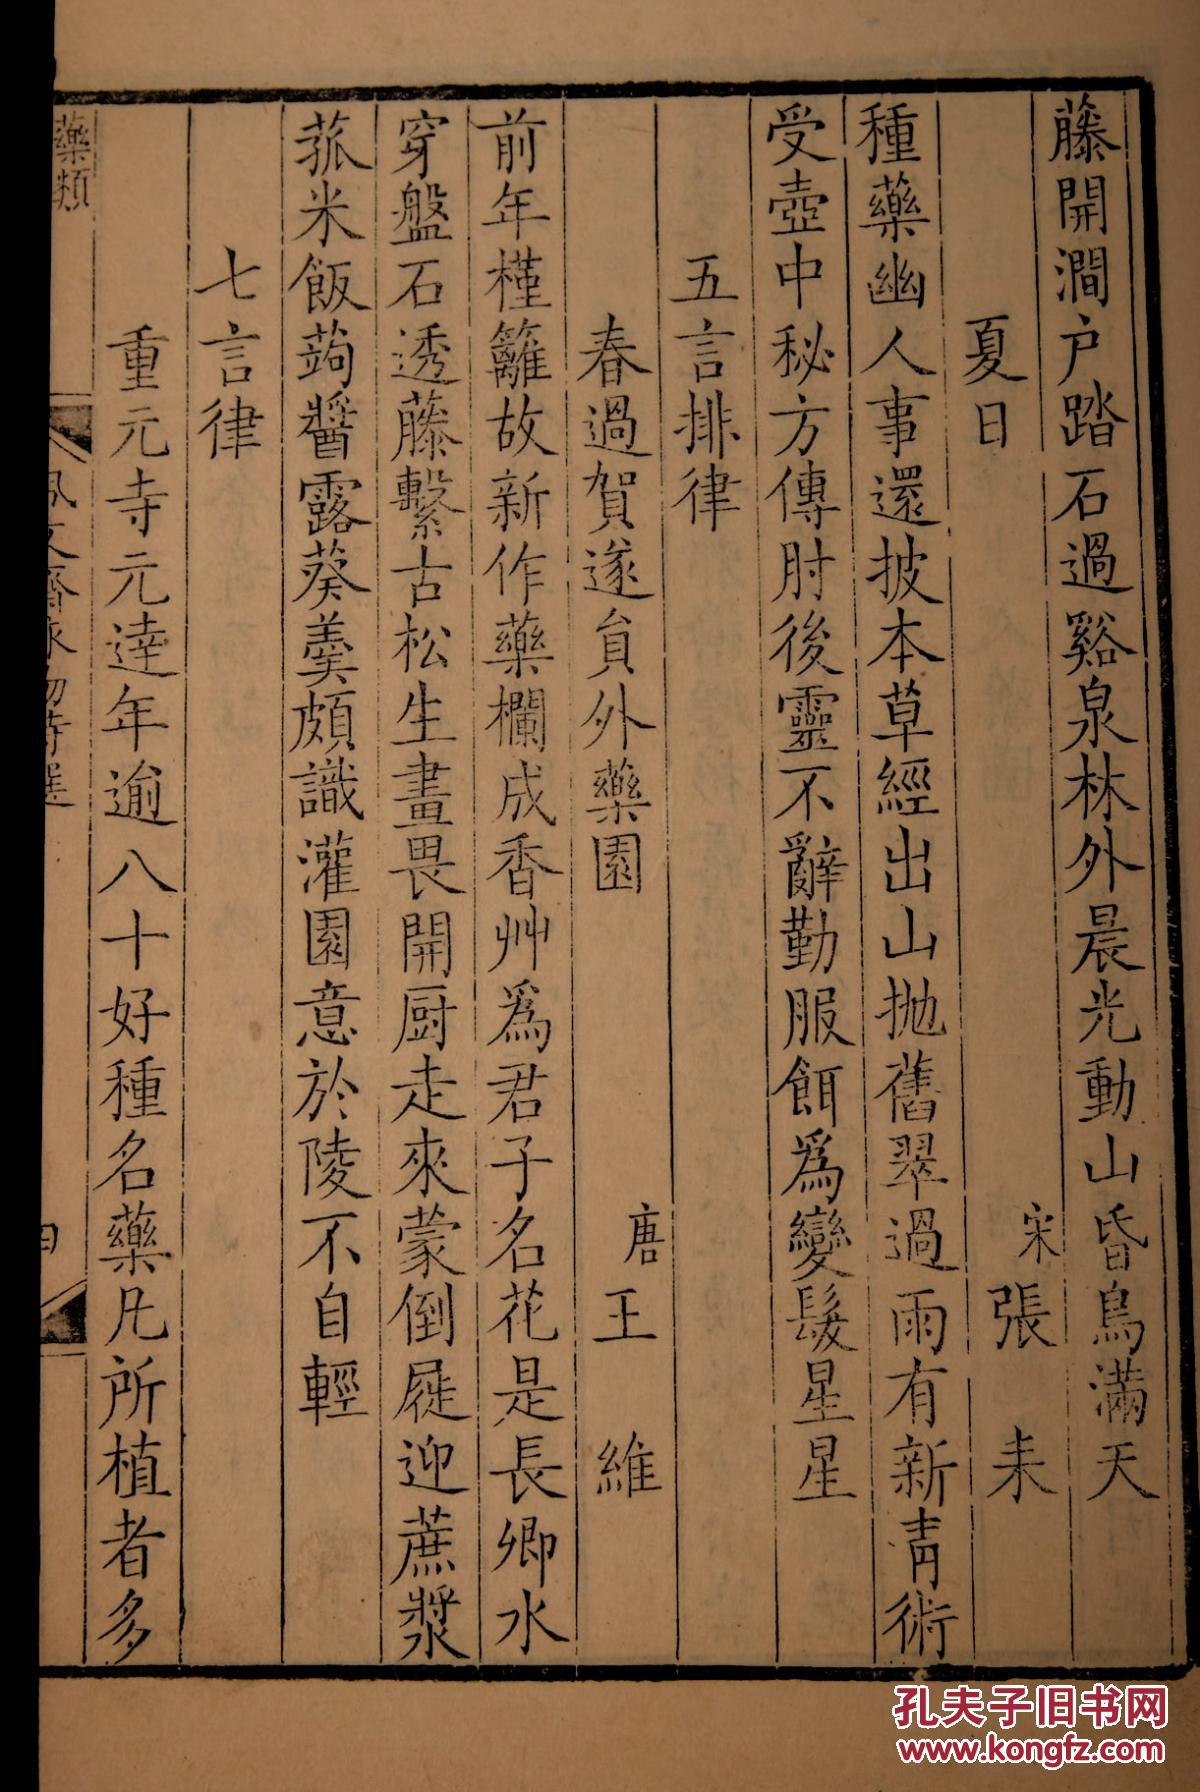 藤開澗户踏石過谿泉林外晨光動山昏鳥滿天
夏日 宋 張耒
種藥幽人事還披本草經出山抛舊翠過雨有新青術
受壺中秘方傳肘後靈不辭勤服餌爲變髮星星
五言排律
春過賀遂貟外藥園 唐 王維
前年槿籬故新作藥欄成香艸爲君子名花是長卿水
穿盤石透藤繫古松生畫畏開厨走來蒙倒屣迎蔗漿
菰米飯蒟醬露葵羮頗識灌園意於陵不自輕
七言律
重元寺元達年逾八十好種名藥凡所植者多
藥類
佩文齋詠物詩選
四
孔夫子旧书网
www.kongfz.com